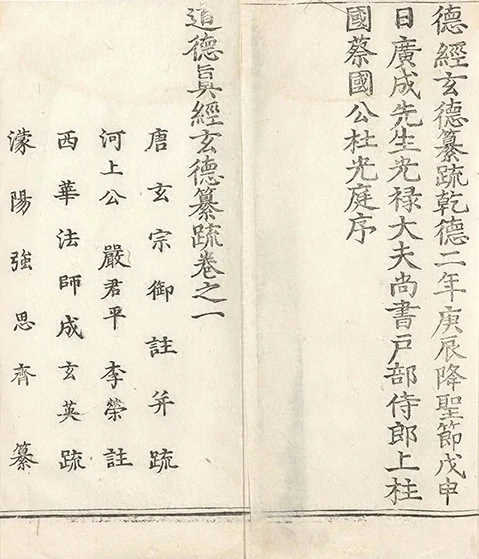 德經玄德纂疏乾德二年庚辰降聖節戊申
日廣成先生光祿大夫尚書戶部侍郎上柱
國蔡國公杜光庭序
道德眞經玄德纂疏卷之一
唐玄宗御註并疏
河上公嚴君平李榮註
西華法師成玄英疏
濛陽強思齊纂